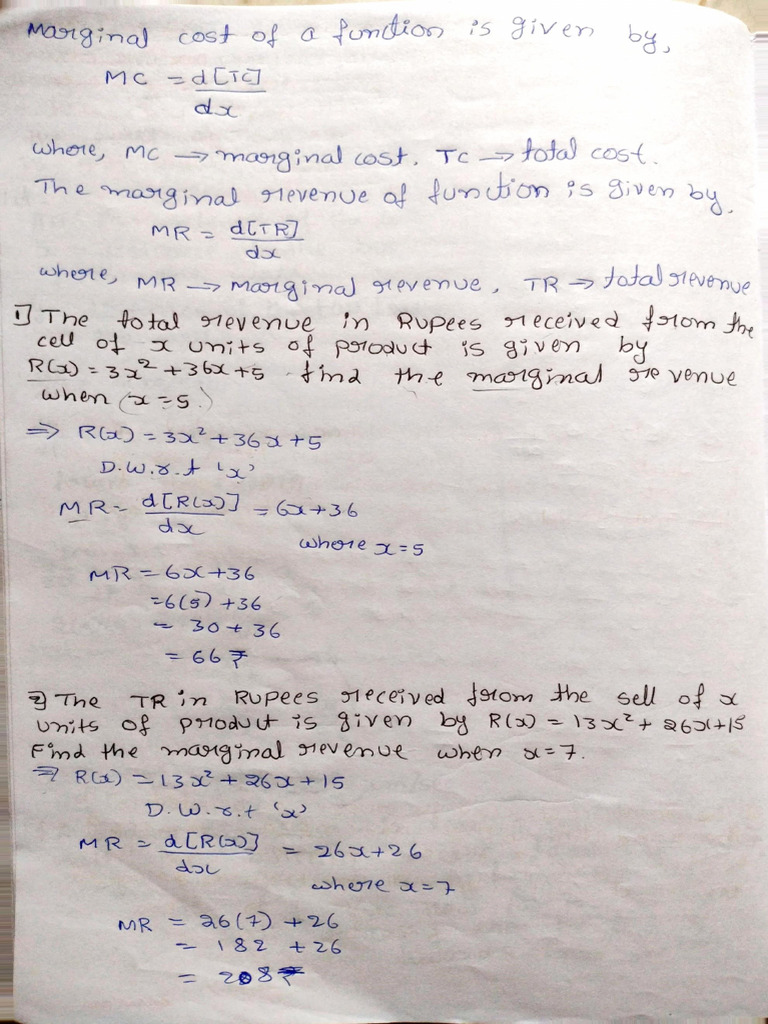 Marginal cost of a function is given by,
MC = d[TC]
dx
where, MC → marginal cost. TC → total cost.
The marginal revenue of function is given by,
MR = d[TR]
dx
where, MR → Marginal revenue, TR → total revenue
1] The total revenue in Rupees received from the
cell of x units of product is given by
R(x) = 3x² + 36x + 5 find the marginal revenue
when (x = 5.)
⇒ R(x) = 3x² + 36x + 5
D.W.r.t 'x'
MR = d[R(x)] = 6x + 36
dx
where x = 5
MR = 6x + 36
= 6(5) + 36
= 30 + 36
= 66 ₹
2] The TR in Rupees received from the sell of x
units of product is given by R(x) = 13x² + 26x + 15
Find the marginal revenue when x = 7.
⇒ R(x) = 13x² + 26x + 15
D.W.r.t 'x'
MR = d[R(x)] = 26x + 26
dx
where x = 7
MR = 26(7) + 26
= 182 + 26
= 208 ₹